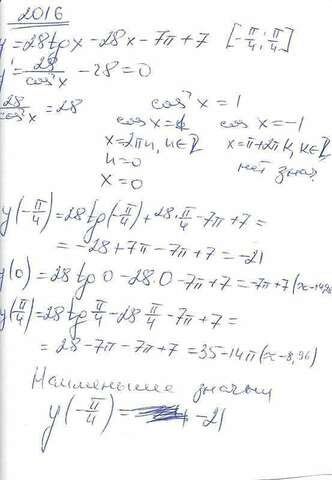 2016
y = 28tgx - 28x - 7π + 7 [-π/4; π/4]
y' = 28/cos²x - 28 = 0
28/cos²x = 28 cos²x = 1
cosx = 1 cosx = -1
x = 2πn, n∈Z x = π + 2πk, k∈Z
n = 0 нет знач.
x = 0
y(-π/4) = 28tg(-π/4) + 28·π/4 - 7π + 7 =
= -28 + 7π - 7π + 7 = -21
y(0) = 28tg0 - 28·0 - 7π + 7 = -7π + 7 (≈ -14,98
y(π/4) = 28tg π/4 - 28 π/4 - 7π + 7 =
= 28 - 7π - 7π + 7 = 35 - 14π (≈ -8,96)
Наименьшее значен
y(-π/4) = -21